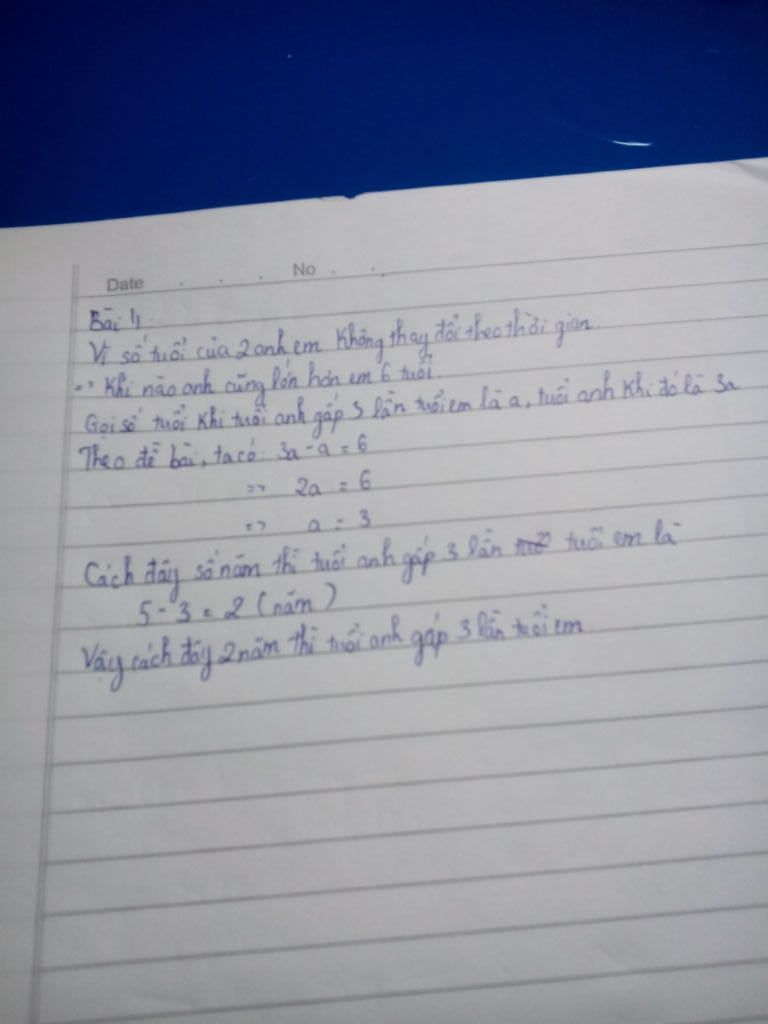 Date . . . No . .
Bài 4:
Vì số tuổi của 2 anh em không thay đổi theo thời gian.
=> Khi nào anh cũng lớn hơn em 6 tuổi.
Gọi số tuổi khi tuổi anh gấp 3 lần tuổi em là a, tuổi anh khi đó là 3a
Theo đề bài, ta có: 3a - a = 6
=> 2a = 6
=> a = 3
Cách đây số năm thì tuổi anh gấp 3 lần tuổi em là
5 - 3 = 2 (năm)
Vậy cách đây 2 năm thì tuổi anh gấp 3 lần tuổi em.